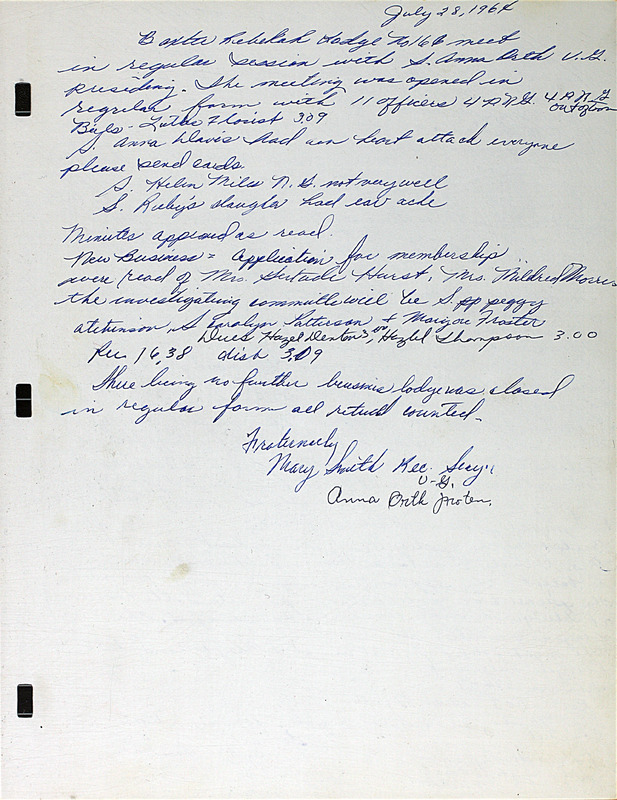 July 28, 1964
Baxter Rebekah Lodge No 166 meet
in regular session with S. Anna Orth V.G.
presiding. The meeting was opened in
regular form with 11 officers 4 P.N.G. 4 P.N.G
out of town
Bills - Lutes Florist 3.09
S. Anna Davis had an heart attack everyone
please send cards.
S. Helen Miles N.G. not very well
S. Ruby's daughter had ear ache
Minutes approved as read.
New Business = Application for membership
were read of Mrs. Gertrude Hurst, Mrs. Mildred Morris
the investigating committe will be S. peggy
atchinson, S Caralyn Patterson + Marjorie Froster
Dues Hazel Denton 3.00, Hazel Thompson 3.00
Rec 16,38 disb 3,09
There being no further business lodge was closed
in regular form all rituals counted.
Fraternally
Mary Smith Rec. Secy.,
V-G.
Anna Orth protem.